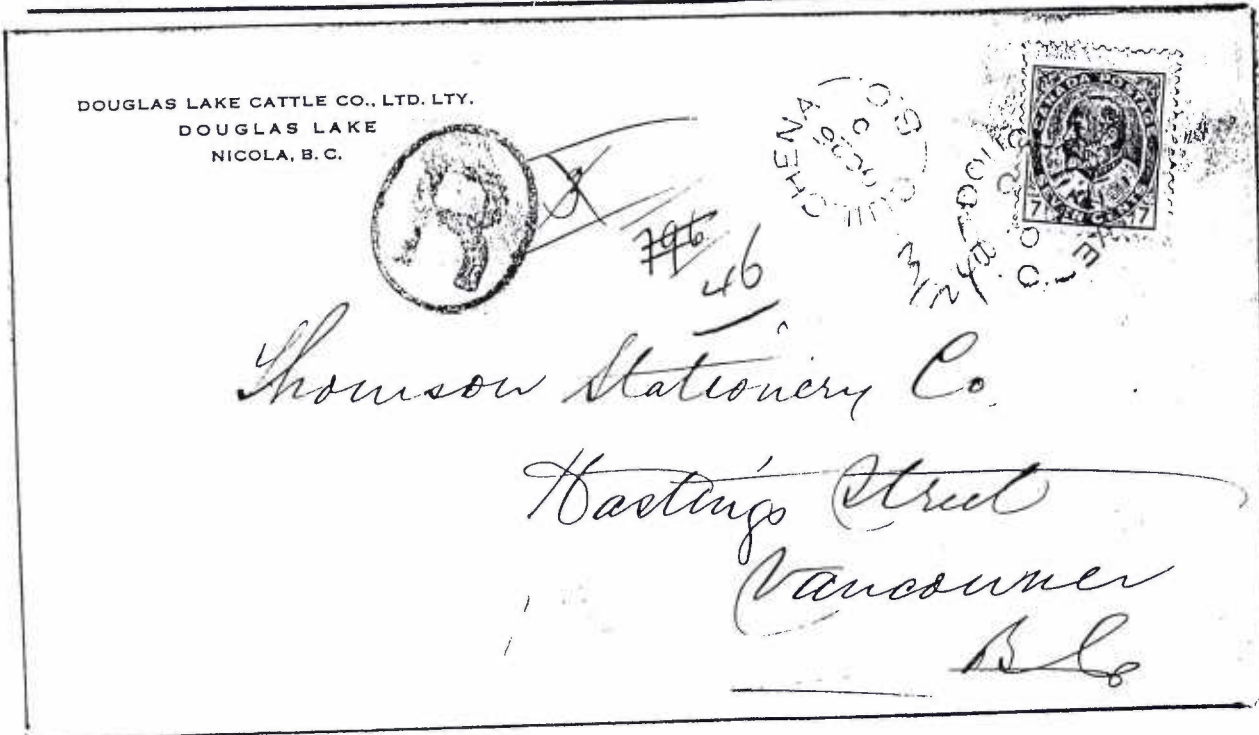 DOUGLAS LAKE CATTLE CO., LTD. LTY.
DOUGLAS LAKE
NICOLA, B. C.
R
QUILCHENA
OC 26
09
CANADA POSTAGE
SEVEN CENTS
7 7
796
46
Thomson Stationery Co.
Hastings Street
Vancouver
B C